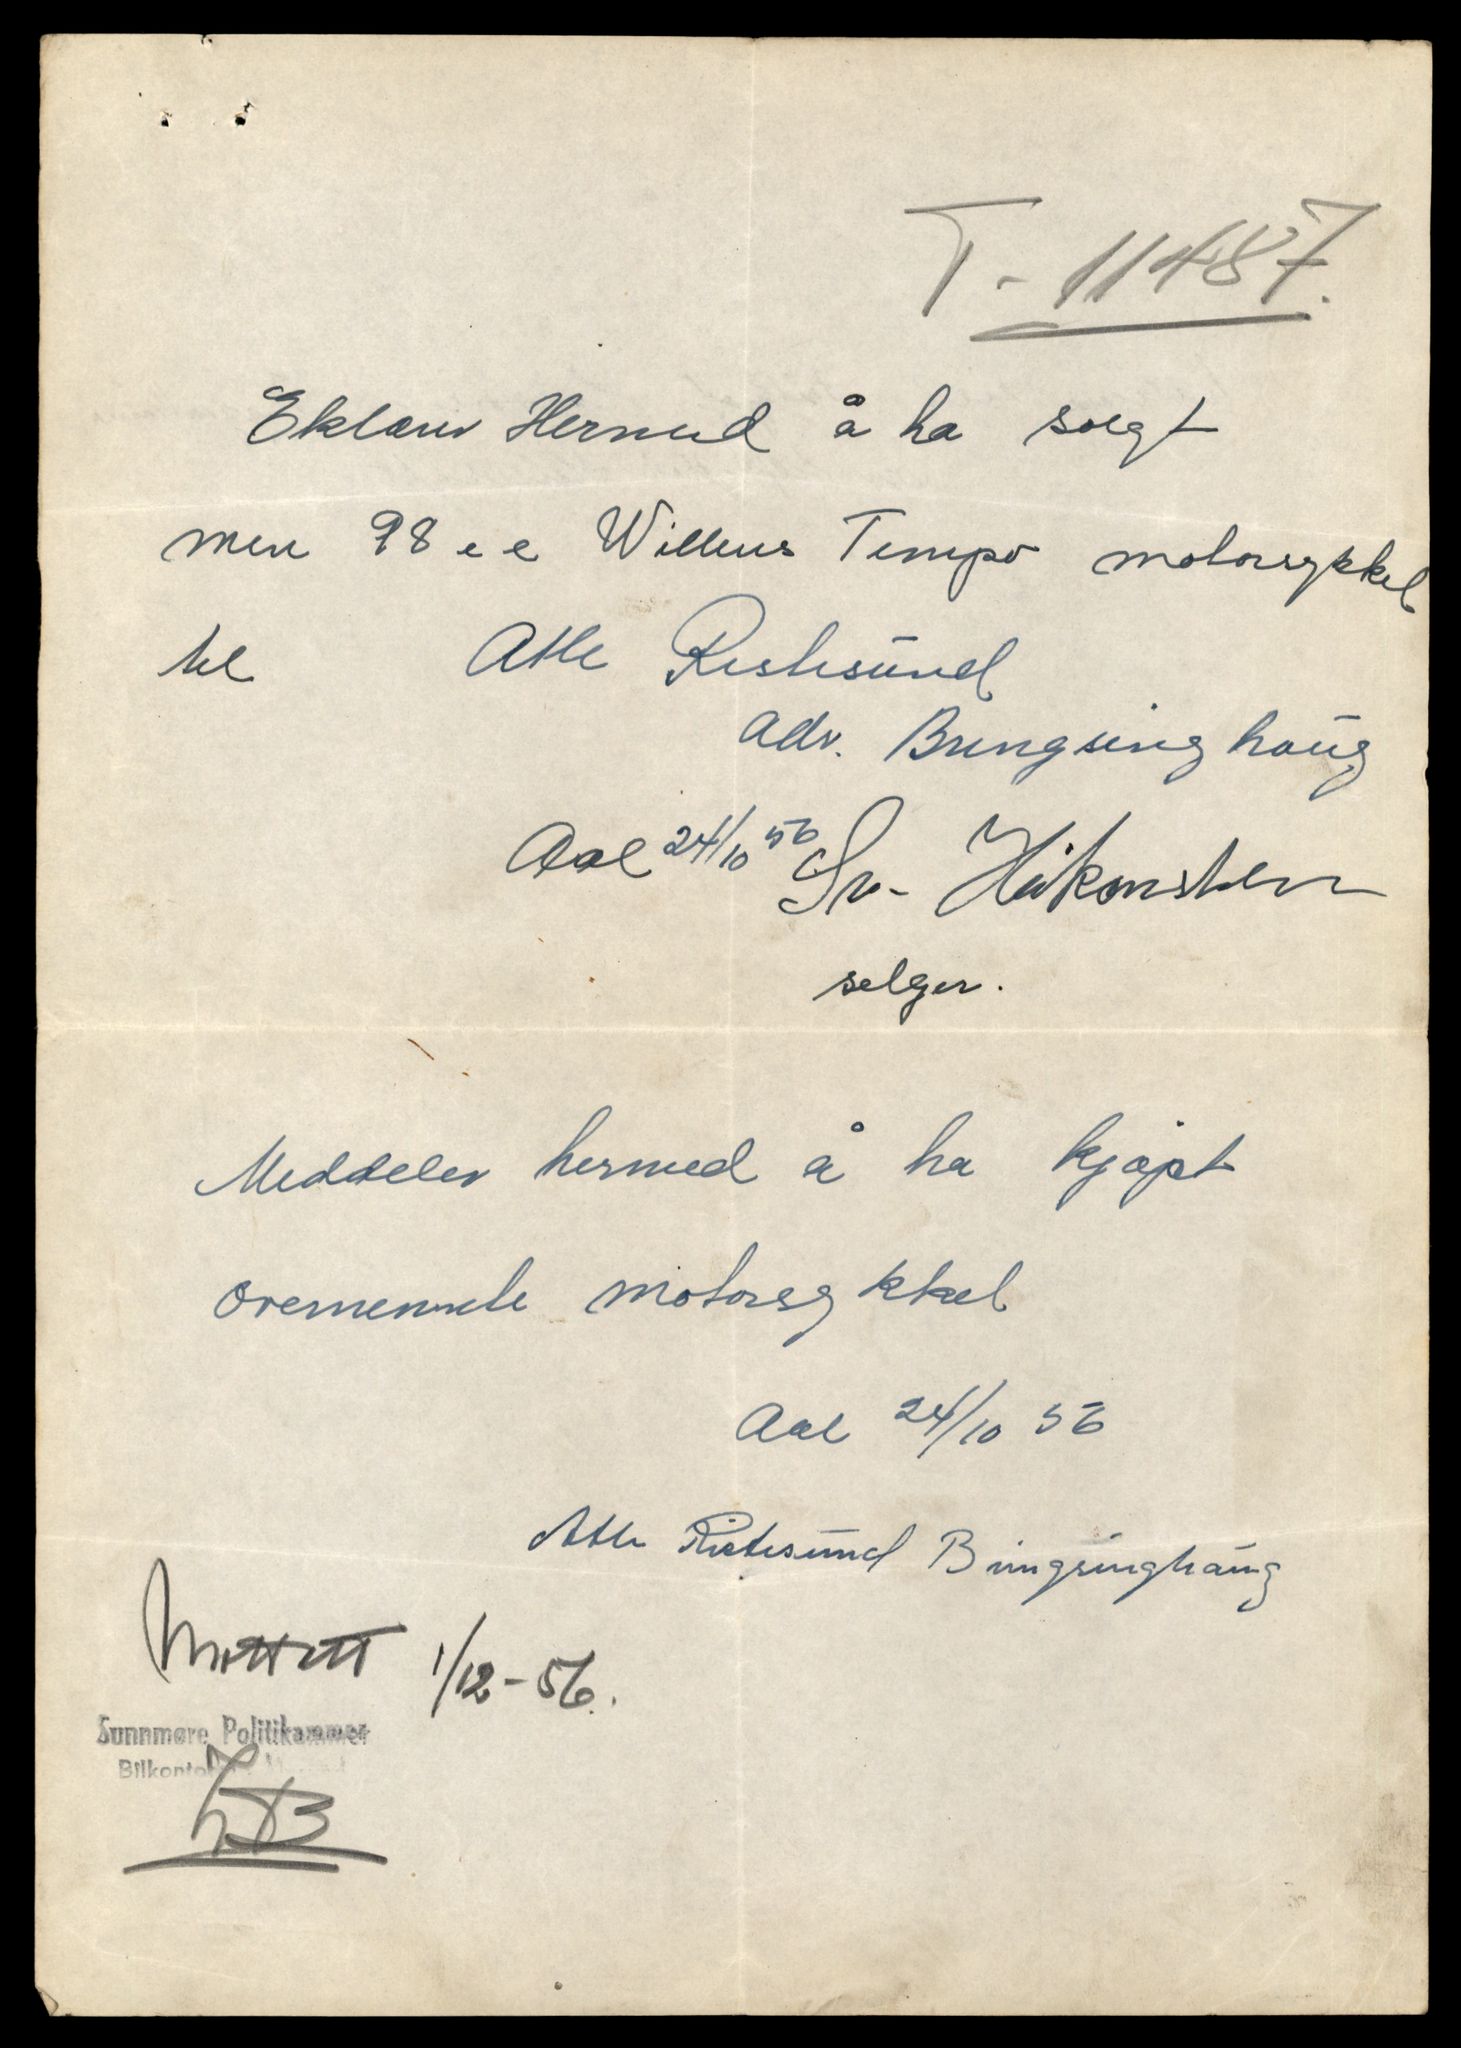 T - 11487.
Eklærer Hermed å ha solgt
min 98 cc Willers Tempo motorsykkel
til Atle Ristesund
adr. Bringsinghaug
Aal 24/10 56 Sv- Håkonsten
selger.
Meddeler hermed å ha kjøpt
ovenennte motorsykkel
Aal 24/10 56
Atle Ristesund Bringsinghaug
Mottatt 1/12-56.
Sunnmøre Politikammer